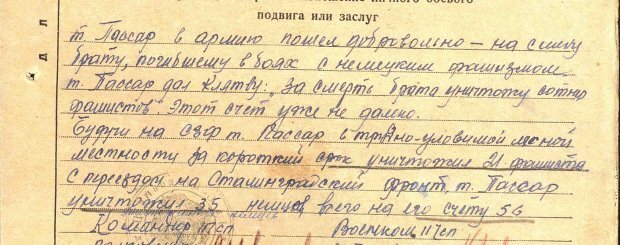 подвига или заслуг
т. Пассар в армию пошел добровольно – на смену
брату, погибшему в боях с немецким фашизмом.
т. Пассар дал клятву: „За смерть брата уничтожу сотню
фашистов". Этот счет уже не далеко.
Будучи на СЗФ т. Пассар в трудно-уловимой лесной
местности за короткий срок уничтожил 21 фашиста
с переездом на Сталинградский фронт, т. Пассар
уничтожил 35 немцев всего на его счету 56
Командир 117сп Военком 117сп